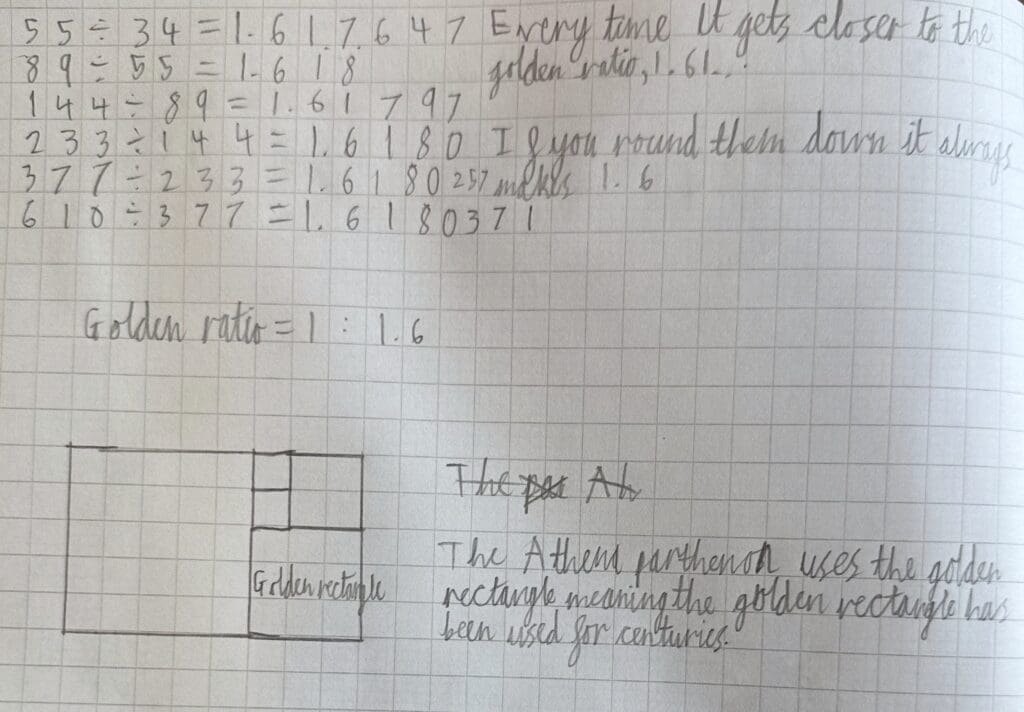 55÷34=1.617647 Every time it gets closer to the
89÷55=1.618 golden ratio, 1.61...
144÷89=1.61797
233÷144=1.6180 If you round them down it always
377÷233=1.6180257 makes 1.6
610÷377=1.6180371
Golden ratio=1:1.6
The At
The Athens parthenon uses the golden
rectangle meaning the golden rectangle has
been used for centuries.
Golden rectangle